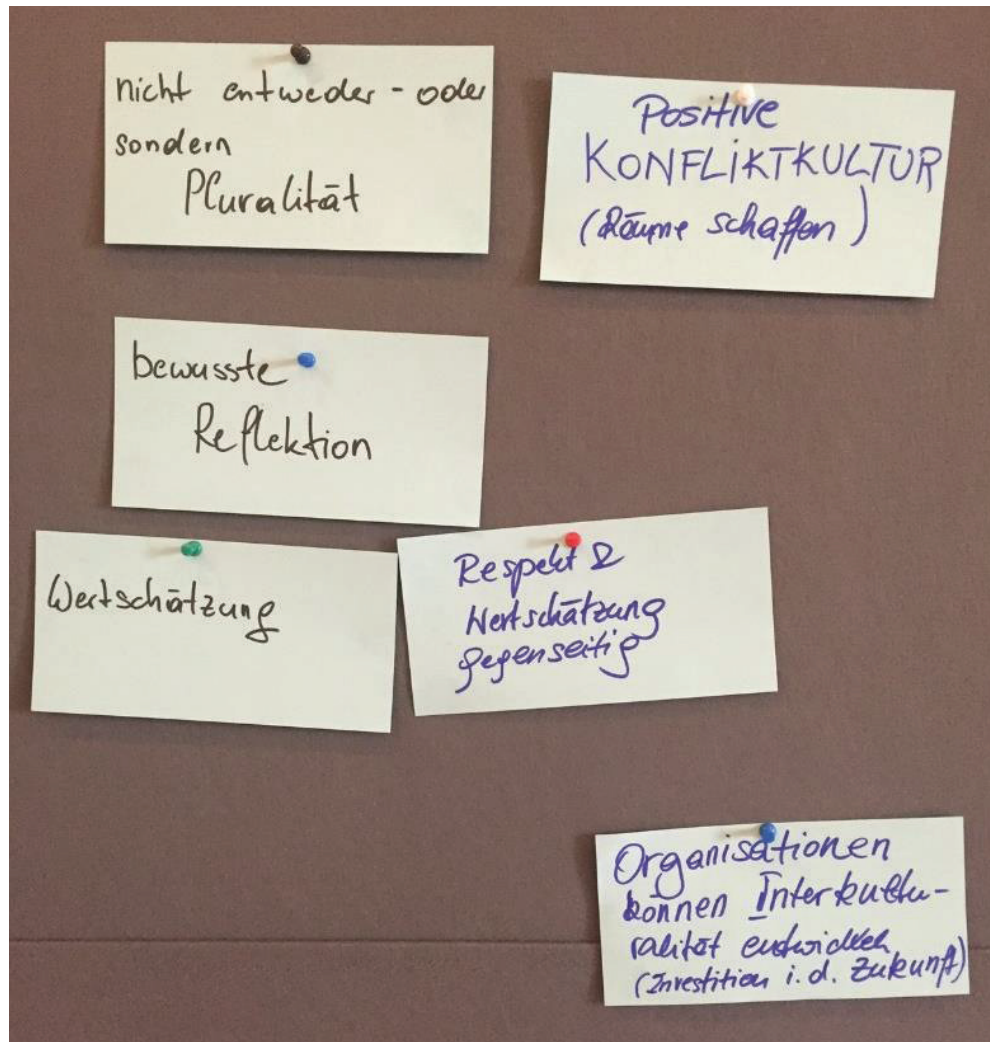 nicht entweder - oder
sondern
Pluralität
Positive
KONFLIKTKULTUR
(Räume schaffen)
bewusste
Reflektion
Wertschätzung
Respekt &
Wertschätzung
gegenseitig
Organisationen
können Interkultu-
ralität entwickeln
(Investition i. d. Zukunft)